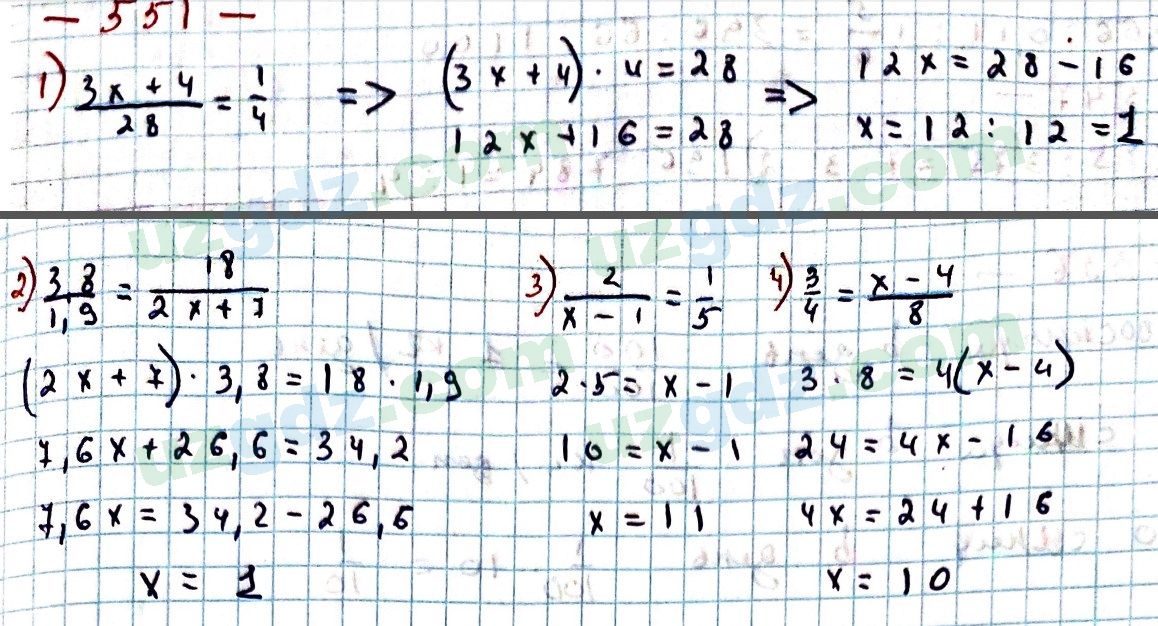 - 551 -
1) (3x + 4)/28 = 1/4 => (3x + 4) · 4 = 28 => 12x = 28 - 16
12x + 16 = 28
x = 12 : 12 = 1
2) 3,8/1,9 = 18/(2x + 7)
(2x + 7) · 3,8 = 18 · 1,9
7,6x + 26,6 = 34,2
7,6x = 34,2 - 26,6
x = 1
3) 2/(x - 1) = 1/5
2 · 5 = x - 1
10 = x - 1
x = 11
4) 3/4 = (x - 4)/8
3 · 8 = 4(x - 4)
24 = 4x - 16
4x = 24 + 16
x = 10
uzgdz.com
uzgdz.com
uzgdz.com
uzgdz.com